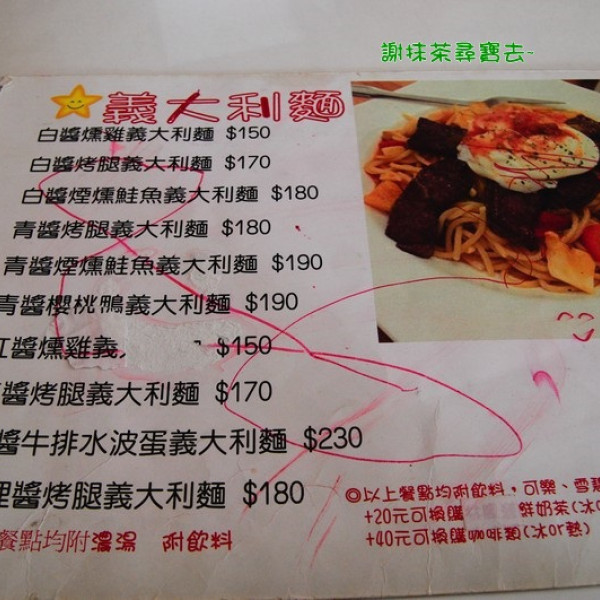 謝抹茶尋寶去~
義大利麵
白醬燻雞義大利麵 $150
白醬烤腿義大利麵 $170
白醬煙燻鮭魚義大利麵 $180
青醬烤腿義大利麵 $180
青醬煙燻鮭魚義大利麵 $190
青醬櫻桃鴨義大利麵 $190
紅醬燻雞義 $150
醬烤腿義大利麵 $170
醬牛排水波蛋義大利麵 $230
醬烤腿義大利麵 $180
◎以上餐點均附飲料，可樂、雪碧
+20元可換購 鮮奶茶(冰
+40元可換購咖啡類(冰or熱)
餐點均附濃湯 附飲料